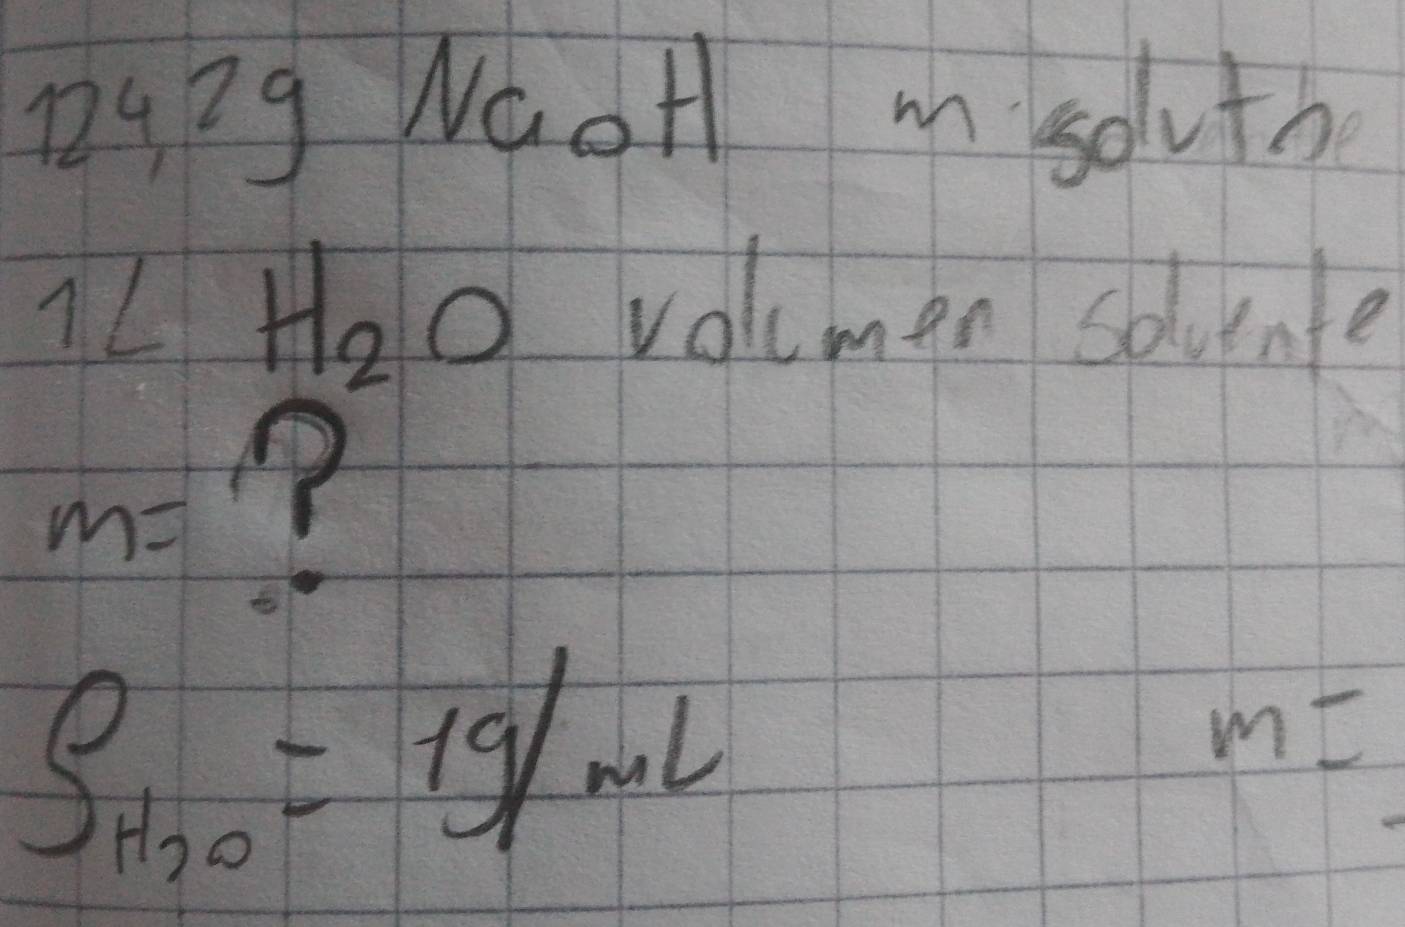 124,2g NaOH m soluto
1L H₂O volumen solvente
m= ?
ρH₂O = 1g/mL m=